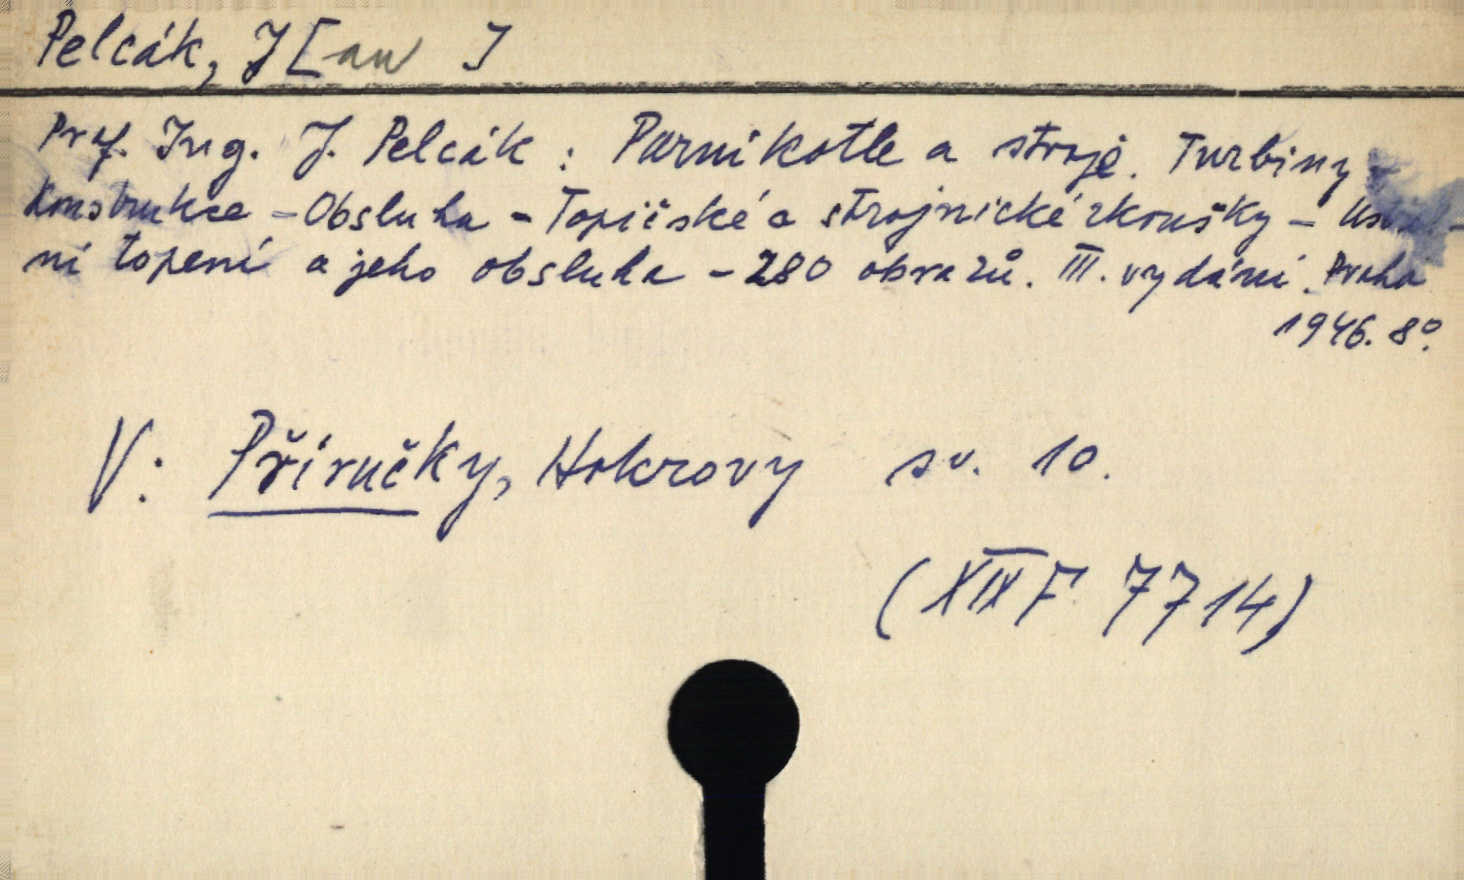 Pelcák, J[an ]
Prof. Ing. J. Pelcák: Parní kotle a stroje. Turbiny -
Konstrukce - Obsluha - Topičské a strojnické zkoušky -
ní topení a jeho obsluha - 280 obrazů. III. vydání. Praha
1946. 8°.
V: Příručky, Hokrovy sv. 10.
(XIX F 7714)